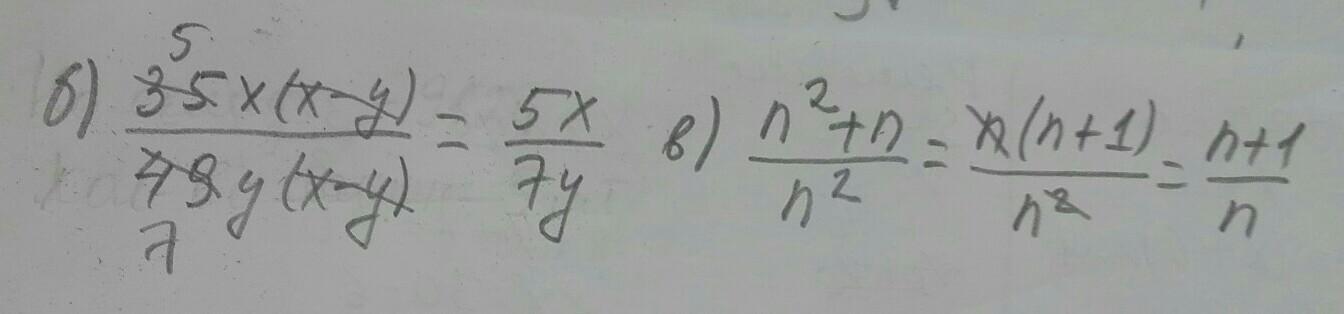 б) 35x(x-y)/49y(x-y) = 5x/7y в) n²+n/n² = n(n+1)/n² = n+1/n
5
7